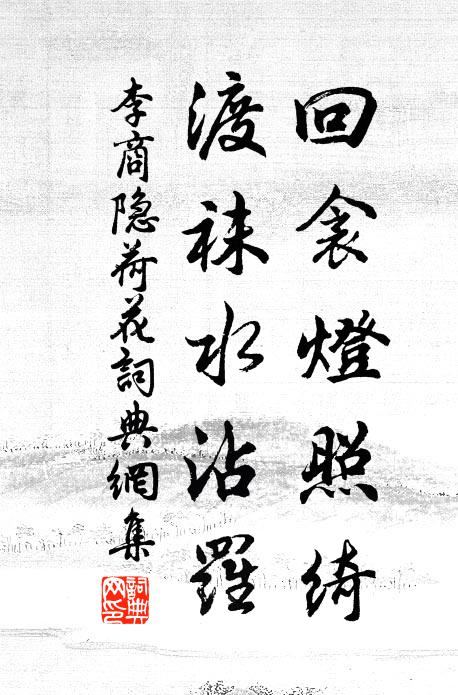 回衾燈照綺
渡袜水沾羅
李商隐荷花詞典網集
詞典
网印